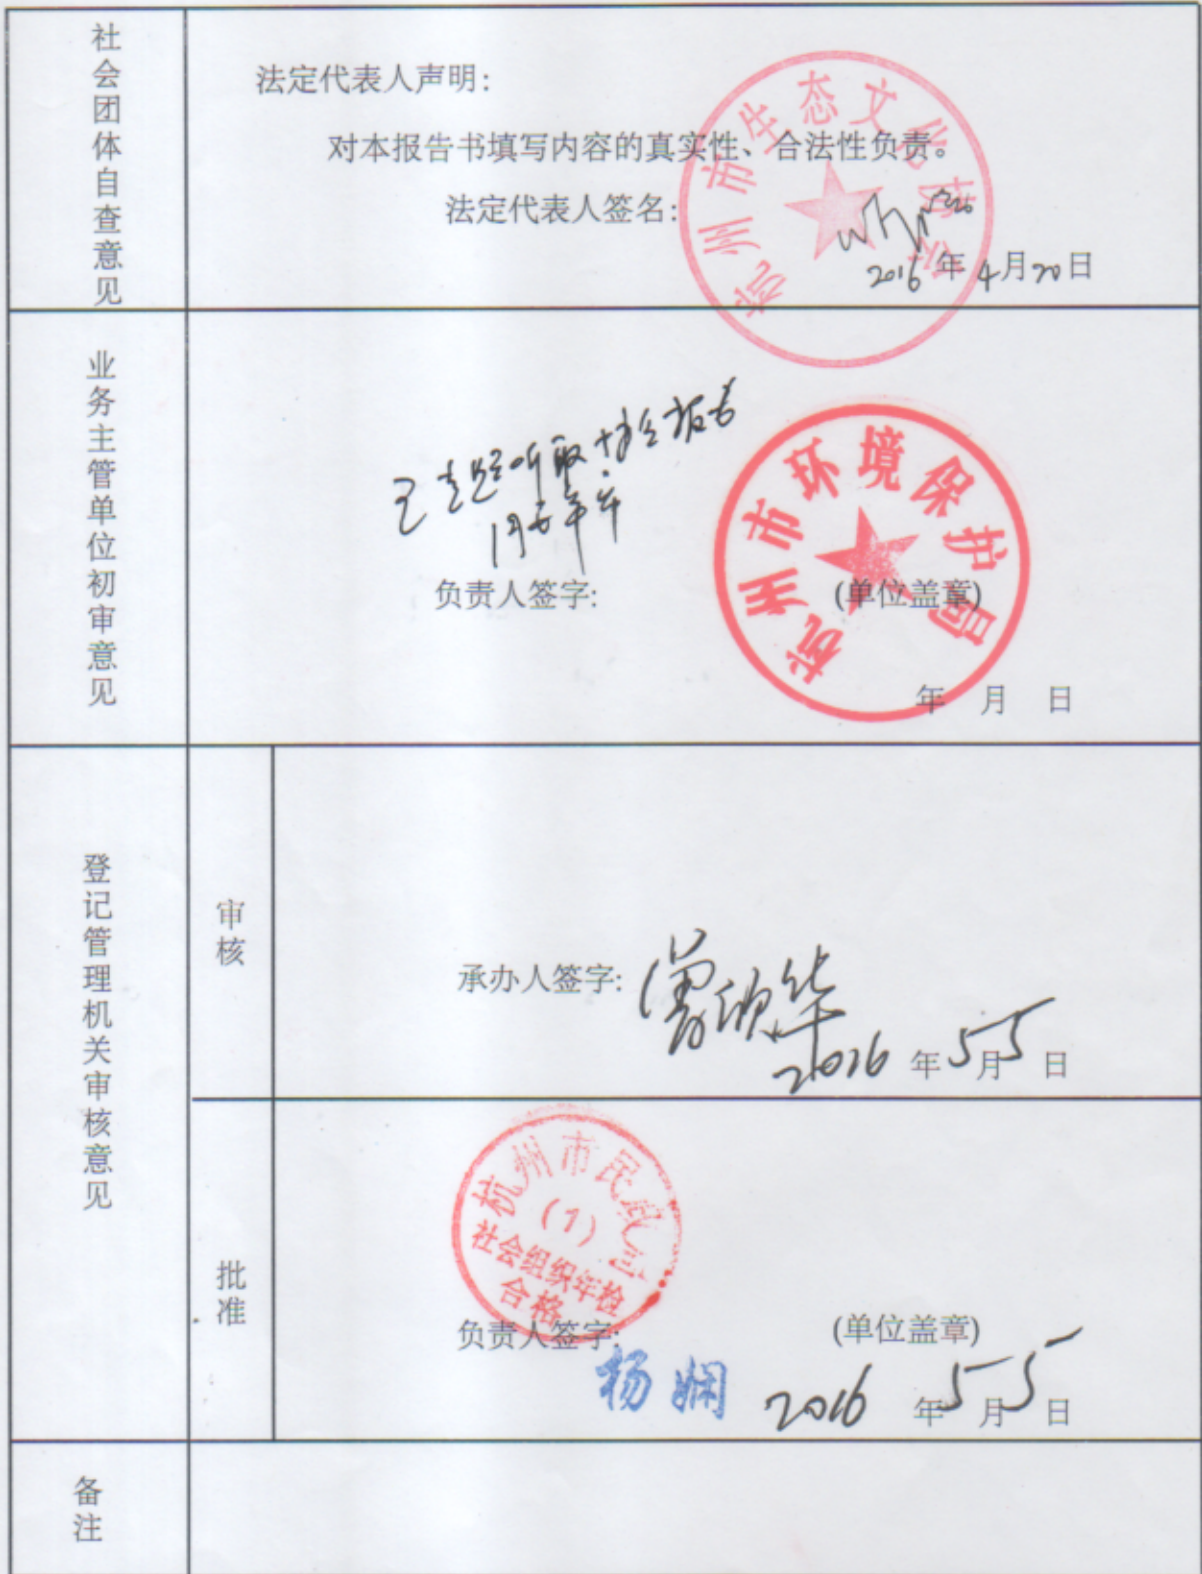 社会团体自查意见
法定代表人声明:
对本报告书填写内容的真实性、合法性负责。
法定代表人签名:
2016年4月20日
杭州市生态文化协会
业务主管单位初审意见
负责人签字:
(单位盖章)
年 月 日
杭州市环境保护局
登记管理机关审核意见
审核
承办人签字:
2016年5月5日
批准
杭州市民政局
(1)
社会组织年检
合格
负责人签字:
(单位盖章)
杨娴
2016年5月5日
备注